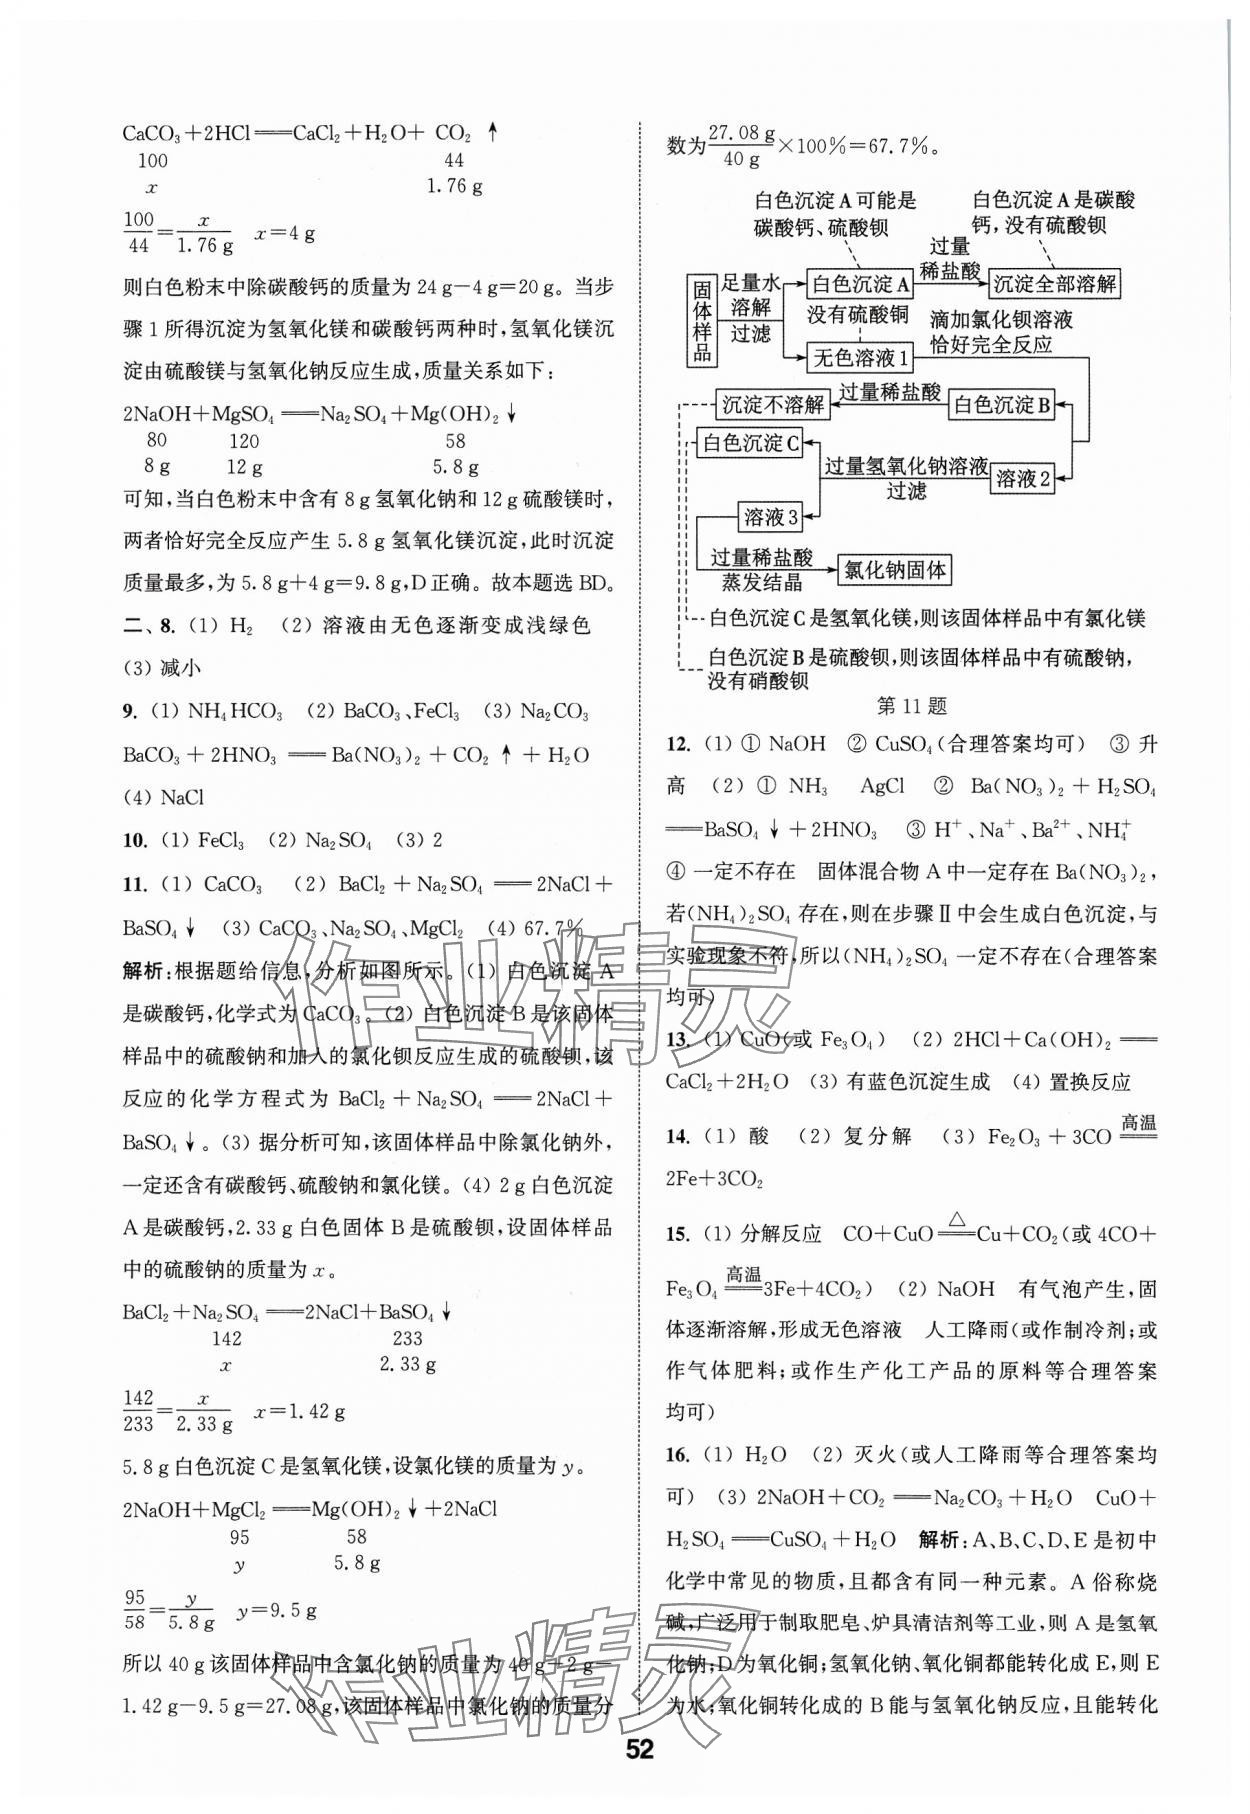 CaCO₃+2HCl══CaCl₂+H₂O+ CO₂ ↑
100 44
x 1.76 g
100/44=x/1.76 g x=4 g
则白色粉末中除碳酸钙的质量为 24 g-4 g=20 g。当步
骤 1 所得沉淀为氢氧化镁和碳酸钙两种时,氢氧化镁沉
淀由硫酸镁与氢氧化钠反应生成,质量关系如下:
2NaOH+MgSO₄══Na₂SO₄+Mg(OH)₂↓
80 120 58
8 g 12 g 5.8 g
可知,当白色粉末中含有 8 g 氢氧化钠和 12 g 硫酸镁时,
两者恰好完全反应产生 5.8 g 氢氧化镁沉淀,此时沉淀
质量最多,为 5.8 g+4 g=9.8 g,D 正确。故本题选 BD。
二、8. (1) H₂ (2) 溶液由无色逐渐变成浅绿色
(3) 减小
9. (1) NH₄HCO₃ (2) BaCO₃、FeCl₃ (3) Na₂CO₃
BaCO₃+2HNO₃══Ba(NO₃)₂+CO₂↑+H₂O
(4) NaCl
10. (1) FeCl₃ (2) Na₂SO₄ (3) 2
11. (1) CaCO₃ (2) BaCl₂+Na₂SO₄══2NaCl+
BaSO₄↓ (3) CaCO₃、Na₂SO₄、MgCl₂ (4) 67.7%
解析:根据题给信息,分析如图所示。(1) 白色沉淀 A
是碳酸钙,化学式为 CaCO₃。(2) 白色沉淀 B 是该固体
样品中的硫酸钠和加入的氯化钡反应生成的硫酸钡,该
反应的化学方程式为 BaCl₂+Na₂SO₄══2NaCl+
BaSO₄↓。(3) 据分析可知,该固体样品中除氯化钠外,
一定还含有碳酸钙、硫酸钠和氯化镁。(4) 2 g 白色沉淀
A 是碳酸钙,2.33 g 白色固体 B 是硫酸钡,设固体样品
中的硫酸钠的质量为 x。
BaCl₂+Na₂SO₄══2NaCl+BaSO₄↓
142 233
x 2.33 g
142/233=x/2.33 g x=1.42 g
5.8 g 白色沉淀 C 是氢氧化镁,设氯化镁的质量为 y。
2NaOH+MgCl₂══Mg(OH)₂↓+2NaCl
95 58
y 5.8 g
95/58=y/5.8 g y=9.5 g
所以 40 g 该固体样品中含氯化钠的质量为 40 g-2 g-
1.42 g-9.5 g=27.08 g,该固体样品中氯化钠的质量分
数为27.08 g/40 g×100%=67.7%。
白色沉淀 A 可能是
碳酸钙、硫酸钡
白色沉淀 A 是碳酸
钙,没有硫酸钡
固体样品
足量水
溶解
过滤
白色沉淀 A
过量
稀盐酸
沉淀全部溶解
没有硫酸铜
无色溶液 1
滴加氯化钡溶液
恰好完全反应
沉淀不溶解
过量稀盐酸
白色沉淀 B
白色沉淀 C
过量氢氧化钠溶液
过滤
溶液 2
溶液 3
过量稀盐酸
蒸发结晶
氯化钠固体
白色沉淀 C 是氢氧化镁,则该固体样品中有氯化镁
白色沉淀 B 是硫酸钡,则该固体样品中有硫酸钠,
没有硝酸钡
第 11 题
12. (1) ① NaOH ② CuSO₄(合理答案均可) ③ 升
高 (2) ① NH₃ AgCl ② Ba(NO₃)₂+H₂SO₄
══BaSO₄↓+2HNO₃ ③ H⁺、Na⁺、Ba²⁺、NH₄⁺
④ 一定不存在 固体混合物 A 中一定存在 Ba(NO₃)₂,
若(NH₄)₂SO₄ 存在,则在步骤Ⅱ中会生成白色沉淀,与
实验现象不符,所以(NH₄)₂SO₄ 一定不存在(合理答案
均可)
13. (1) CuO(或 Fe₃O₄) (2) 2HCl+Ca(OH)₂══
CaCl₂+2H₂O (3) 有蓝色沉淀生成 (4) 置换反应
14. (1) 酸 (2) 复分解 (3) Fe₂O₃+3CO 高温══
2Fe+3CO₂
15. (1) 分解反应 CO+CuO △══Cu+CO₂(或 4CO+
Fe₃O₄ 高温══3Fe+4CO₂) (2) NaOH 有气泡产生,固
体逐渐溶解,形成无色溶液 人工降雨(或作制冷剂;或
作气体肥料;或作生产化工产品的原料等合理答案
均可)
16. (1) H₂O (2) 灭火(或人工降雨等合理答案均
可) (3) 2NaOH+CO₂══Na₂CO₃+H₂O CuO+
H₂SO₄══CuSO₄+H₂O 解析:A、B、C、D、E 是初中
化学中常见的物质,且都含有同一种元素。A 俗称烧
碱,广泛用于制取肥皂、炉具清洁剂等工业,则 A 是氢氧
化钠;D 为氧化铜;氢氧化钠、氧化铜都能转化成 E,则 E
为水;氧化铜转化成的 B 能与氢氧化钠反应,且能转化
52
作业精灵
作业精灵